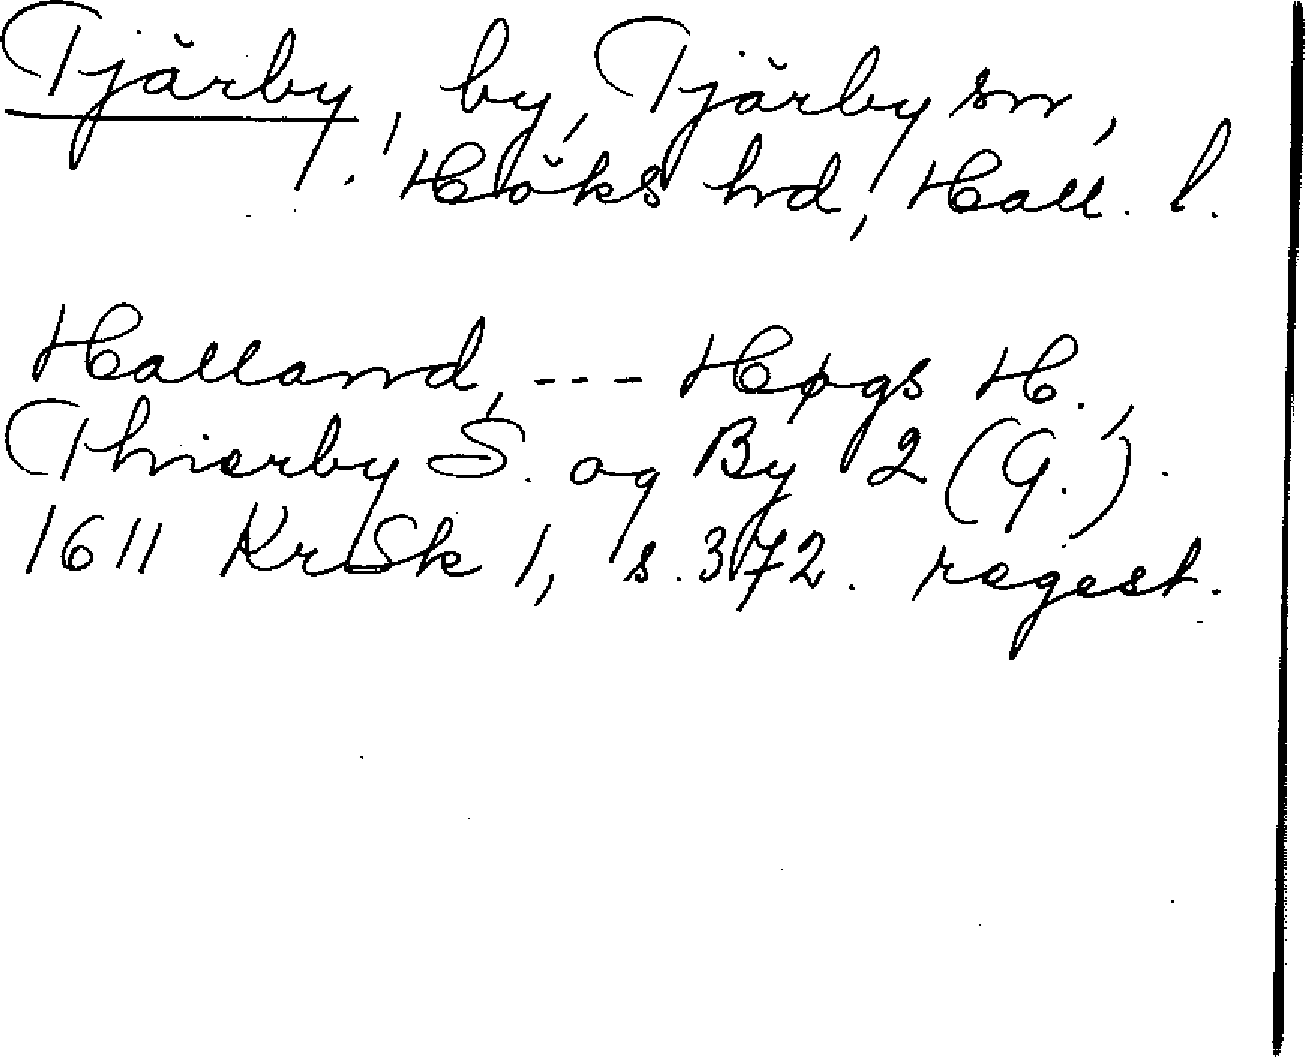 Tjärby, by, Tjärby sn,
Höks hd, Hall. l.
Halland, --- Høgs H.,
Thierby S. og By 2 (G.).
1611 KrSk 1, s. 372. regest.